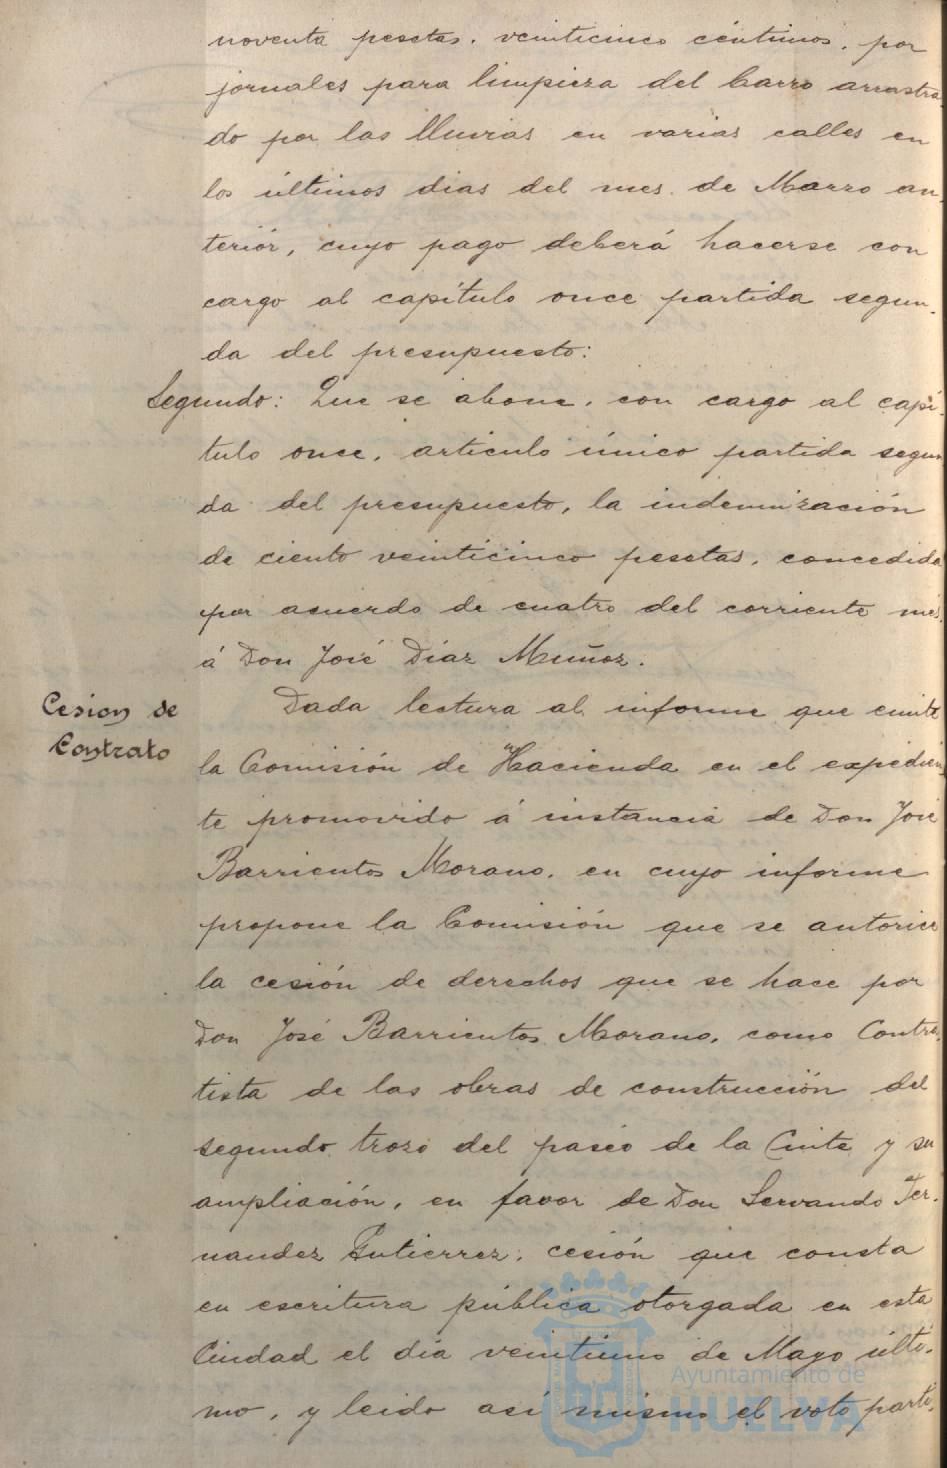 noventa pesetas, veinticinco céntimos, por
jornales para limpieza del barro arrastra-
do por las lluvias en varias calles en
los últimos dias del mes de Marzo an-
terior, cuyo pago deberá hacerse con
cargo al capítulo once partida segun-
da del presupuesto:
Segundo: Que se abone, con cargo al capí-
tulo once, articulo único partida segun
da del presupuesto, la indemnización
de ciento veinticinco pesetas, concedida
por acuerdo de cuatro del corriente mes,
á Don José Díaz Muñoz.
Cesion de
Contrato
Dada lectura al informe que emite
la Comisión de Hacienda en el expedien-
te promovido á instancia de Don José
Barrientos Morano, en cuyo informe
propone la Comisión que se autorice
la cesión de derechos que se hace por
Don José Barrientos Morano, como Contra-
tista de las obras de construcción del
segundo trozo del paseo de la Cinta y su
ampliación, en favor de Don Servando Fer-
nandez Gutierrez; cesión que consta
en escritura pública otorgada en esta
Ciudad el día veintiuno de Mayo últi-
mo, y leido así mismo el voto parti-
Ayuntamiento de
HUELVA